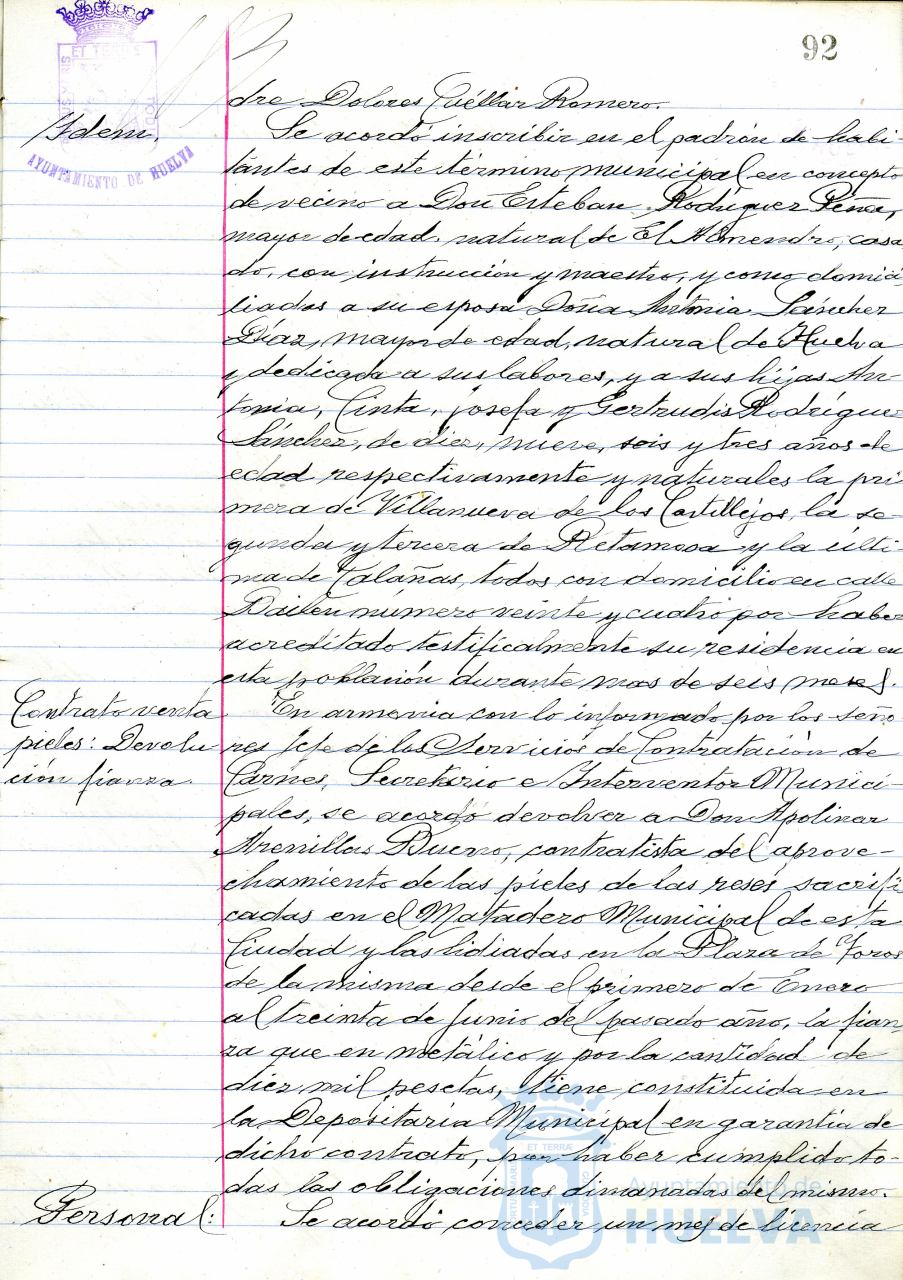 92
dre Dolores Cuéllar Romero.
Idem.
AYUNTAMIENTO DE HUELVA
Se acordó inscribir en el padrón de habi-
tantes de este término municipal en concepto
de vecino a Don Esteban Rodríguez Peña,
mayor de edad, natural de El Almendro, casa
do, con instrucción y maestro, y como domici
liados a su esposa Doña Antonia Sánchez
Díaz, mayor de edad, natural de Huelva
y dedicada a sus labores, y a sus hijas An-
tonia, Cinta, Josefa y Gertrudis Rodríguez
Sánchez, de diez, nueve, seis y tres años de
edad respectivamente y naturales la pri
mera de Villanueva de los Castillejos, la se-
gunda y tercera de Retamosa y la últi
ma de Calañas, todos con domicilio en calle
Bailén número veinte y cuatro por haber
acreditado testificalmente su residencia en
esta población durante mas de seis meses.
Contrato venta
pieles: Devolu
ción fianza.
En armonia con lo informado por los seño
res Jefe de los Servicios de Contratación de
Carnes, Secretario e Interventor Munici-
pales, se acordó devolver a Don Apolinar
Arenillas Bueno, contratista del aprove-
chamiento de las pieles de las reses sacrifi
cadas en el Matadero Municipal de esta
Ciudad y las lidiadas en la Plaza de Toros
de la misma desde el primero de Enero
al treinta de Junio del pasado año, la fian
za que en metálico y por la cantidad de
diez mil pesetas, tiene constituida en
la Depósitaria Municipal en garantía de
dicho contrato, por haber cumplido to-
das las obligaciones dimanadas del mismo.
Personal:
Se acordó conceder un mes de licencia
Ayuntamiento de
HUELVA